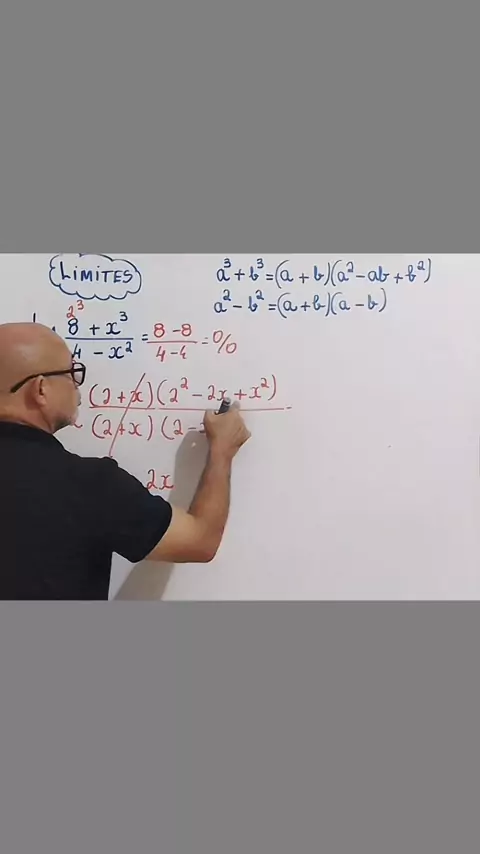 LIMITES
a³ + b³ = (a + b)(a² - ab + b²)
a² - b² = (a + b)(a - b)
2³
8 + x³ / 4 - x² = 8 - 8 / 4 - 4 = 0/0
(2 + x)(2² - 2x + x²)
(2 + x)(2 -
2x